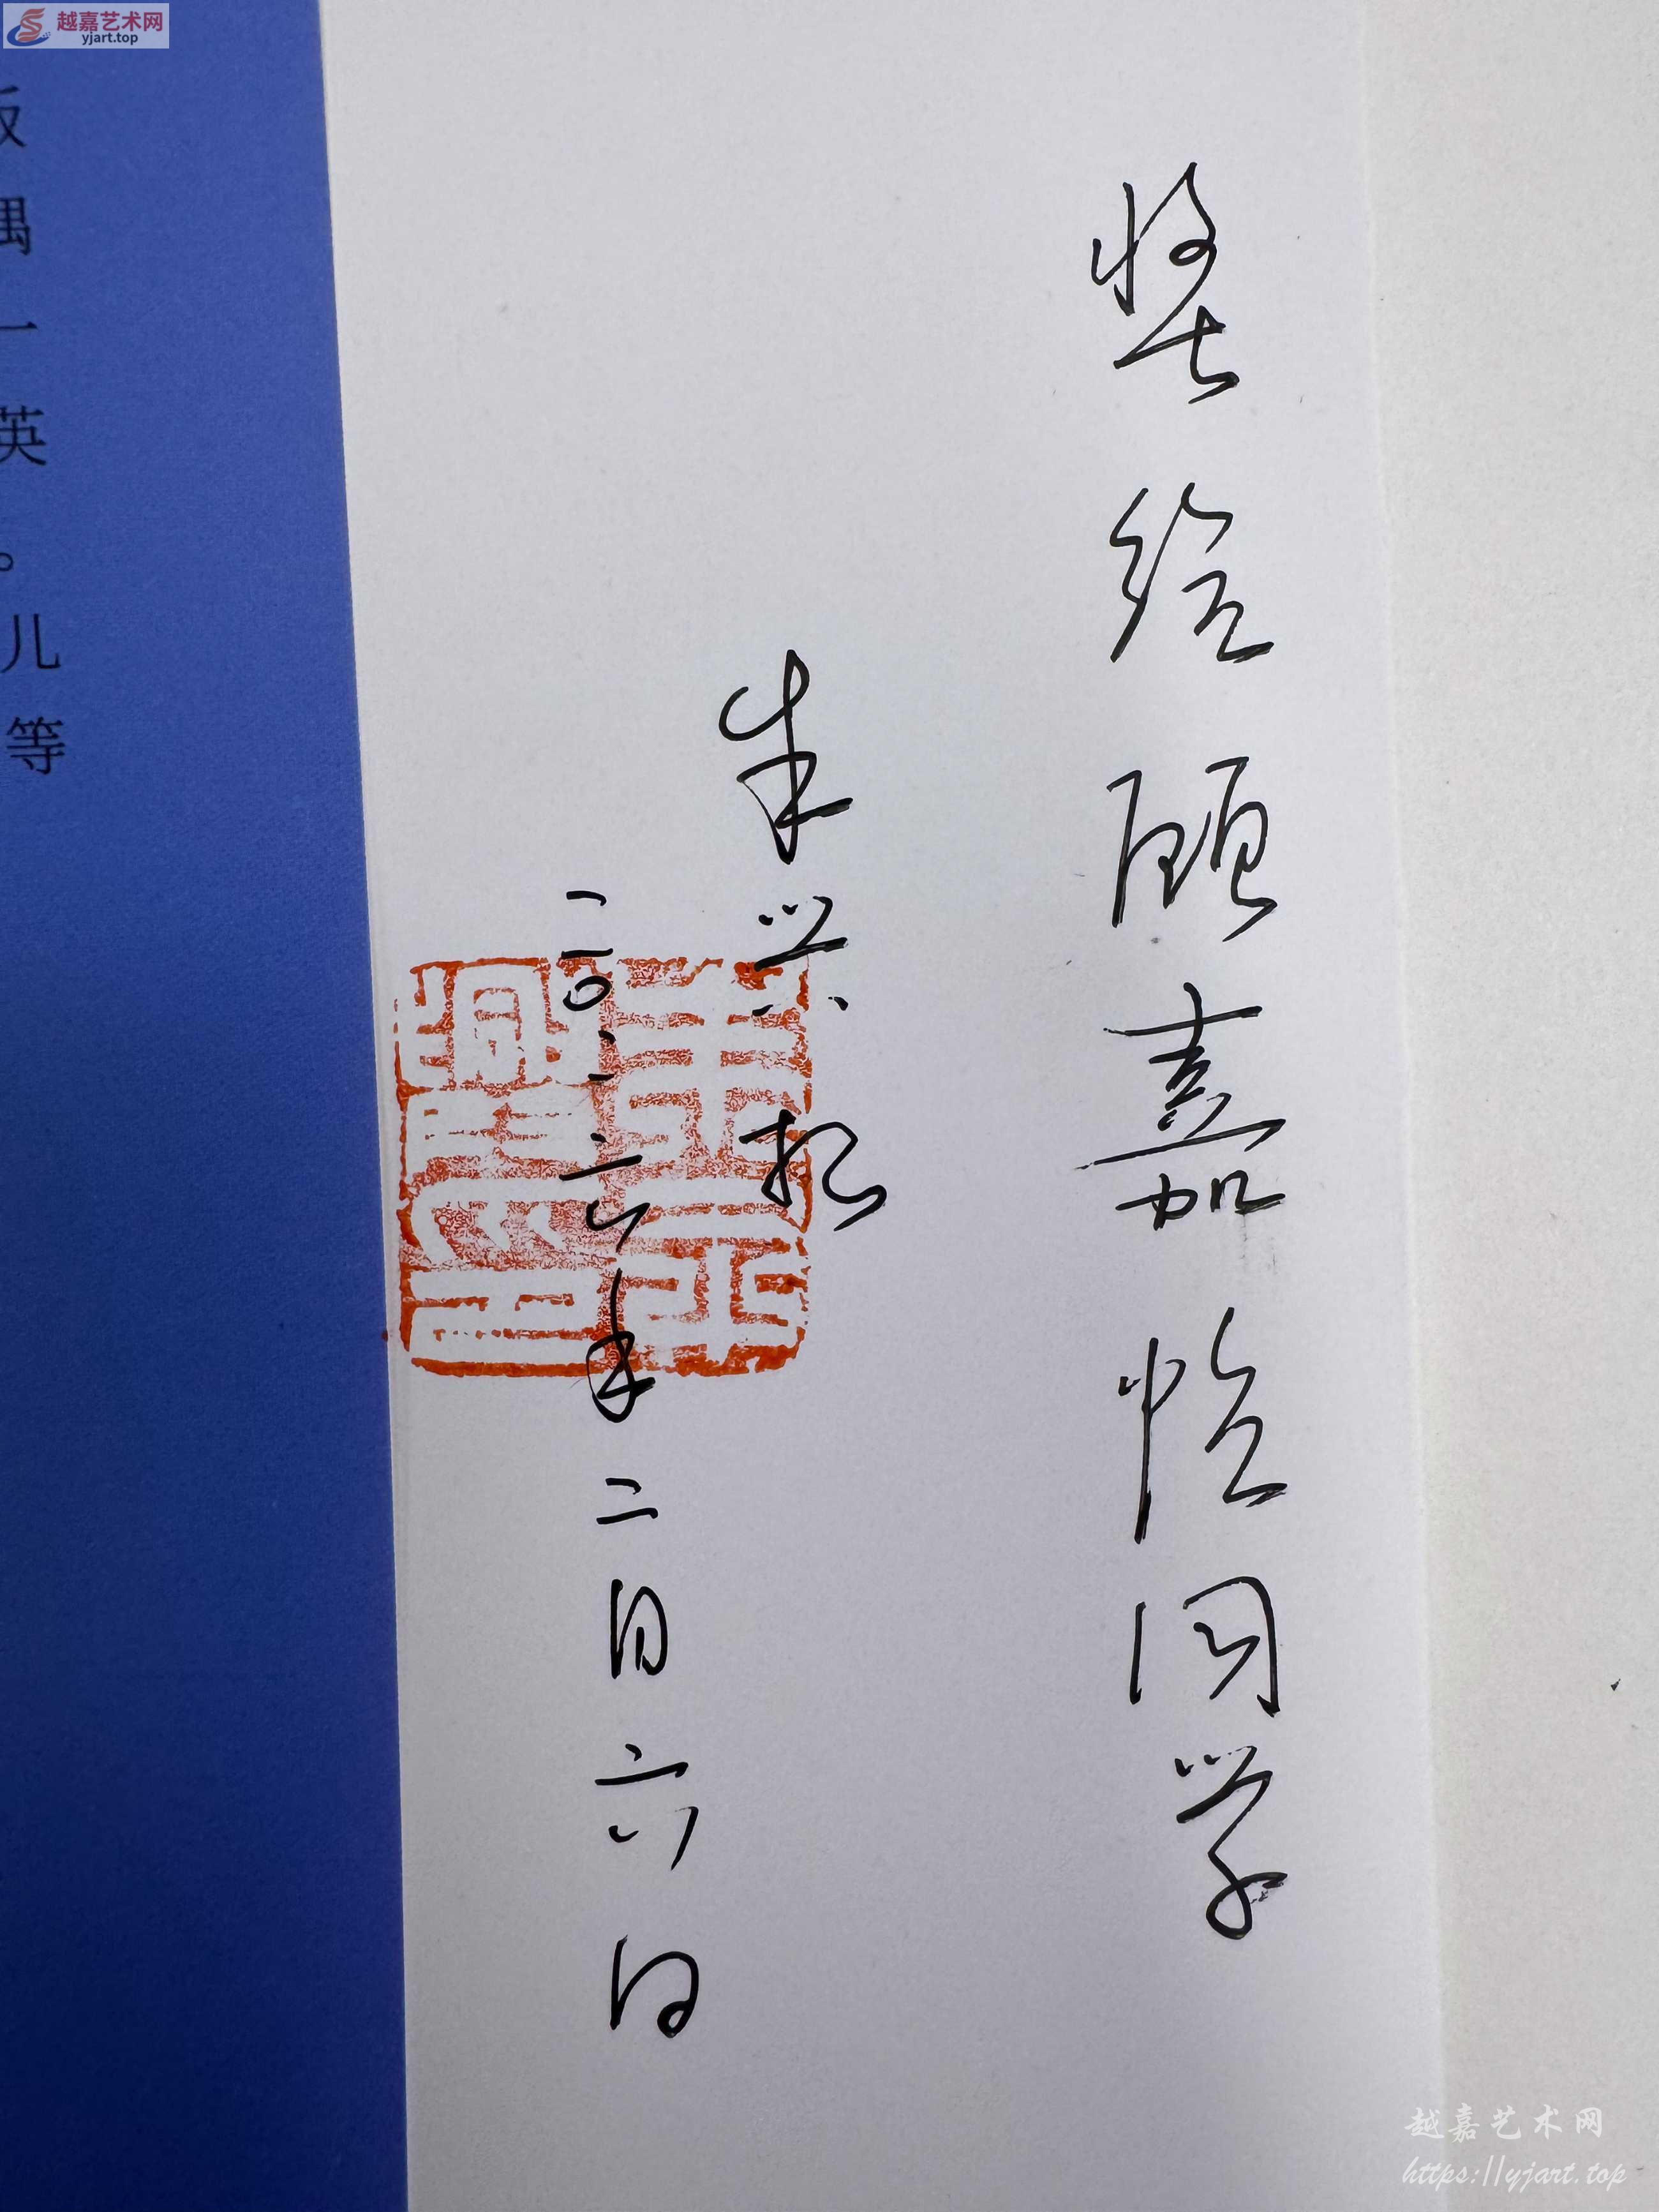 越嘉艺术网
yjart.top
一
英
。
儿
等
奖给顾嘉怡同学
朱兴
二〇二六年二月六日
越嘉艺术网
https://yjart.top